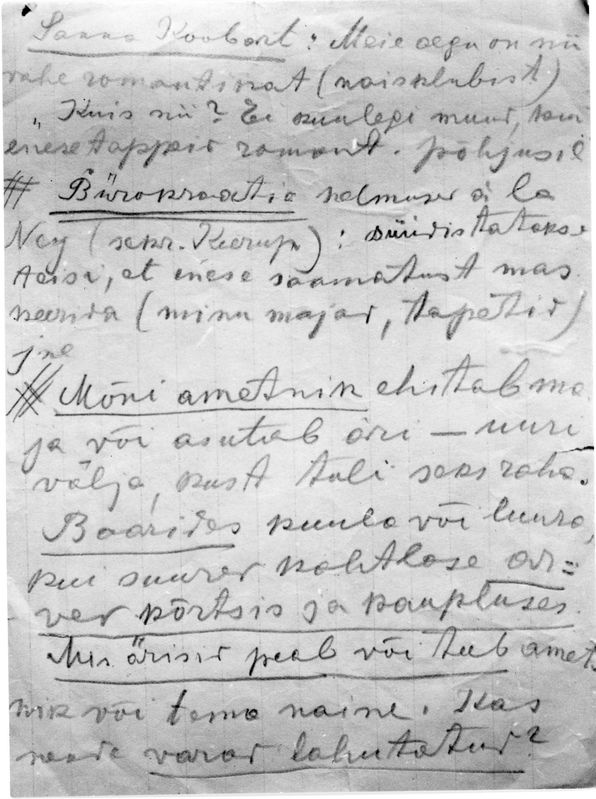 Sanna Koobart: Meie aegu on nii
vähe romantikat (naisklubist)
„Kuis nii? Ei kuulegi muud, kui
enesetappid romant. põhjusil
# Bürokraatia helmused à la
Ney (sekr. Keerup): süüdistatakse
teisi, et enese saamatust mas
keerida (minu majad, tapetid)
jne
# Mõni ametnik ehitab ma
ja või asutab äri — uuri
välja, kust tuli seks raha.
Baarides kuula või luura,
kui suured kahtlase ar=
ved kõrtsis ja kaupluses.
Mis ärisid peab või teeb amet
nik või tema naine. Kas
neade varad lahutatud?